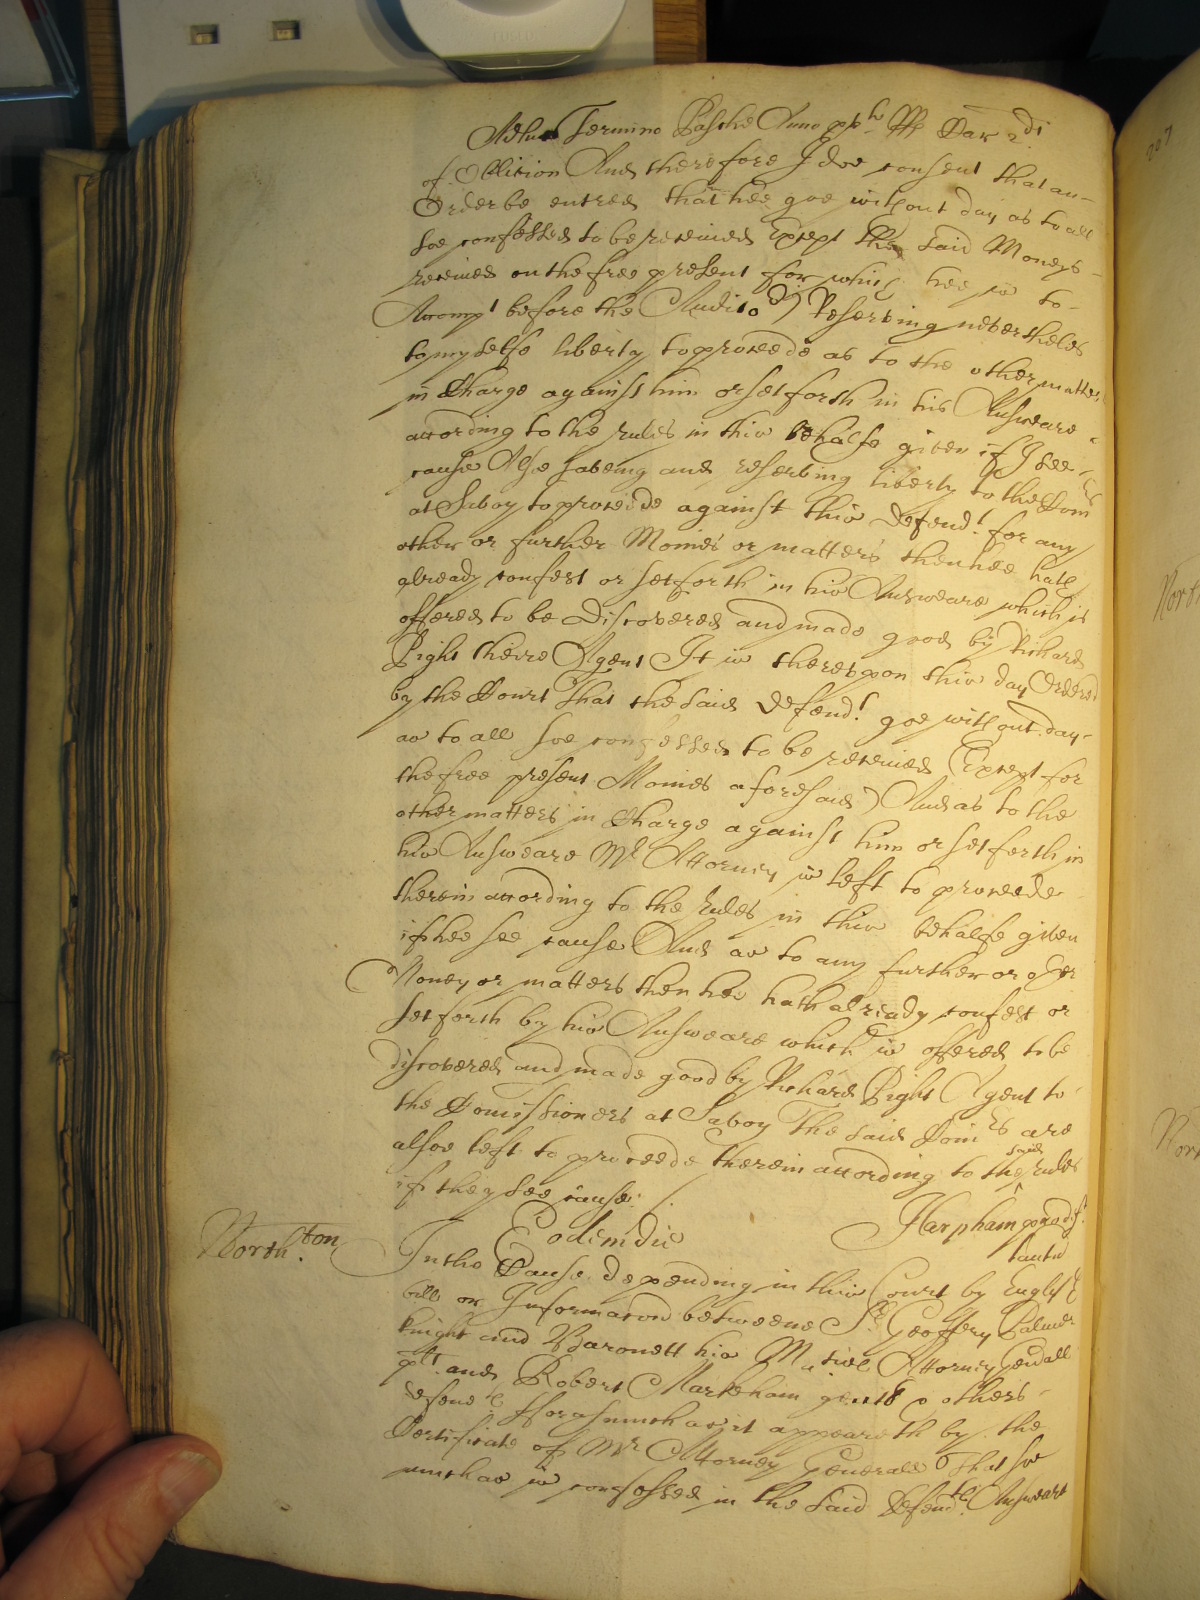 Adhuc Termino Pasche Anno xvjto RRs Car 2di
of Oblivion And therefore I doe consent that an
Order be entred that hee goe without day as to all
soe confessed to be received Except the said Moneys
received on the free present for which hee is to
Accompt before the Auditor) Reserving neverthelesse
to my selfe liberty to proceede as to the other matters
in Charge against him or set forth in his Answeare
according to the rules in this behalfe given if I see
cause Alsoe saveing and reserving liberty to the Comrs
at Savoy to proceede against this Defendt for any
other or further Monies or matters then hee hath
already confest or set forth in his Answeare which is
offered to be discovered and made good by Richard
Right theire Agent It is thereupon this day Ordered
by the Court That the said Defendt goe without day
as to all soe confessed to be received (Except for
the free present Monies aforesaid) And as to the
other matters in Charge against him or set forth in
his Answeare Mr Attorney is left to proceede
therein according to the rules in this behalfe given
if hee see cause And as to any further or other
Money or matters then hee hath already confest or
set forth by his Answeare which is offered to be
discovered and made good by Richard Right Agent to
the Comissioners at Savoy The said Comrs are
alsoe left to proceede therein according to the said rules
if they see cause
Harpham pro
North:ton
Eodem die
In the Cause depending in this Court by English
bill or Informacon betweene Sr Geoffery Palmer
Knight and Baronett his Mats Attorney Generall
plt and Robert Markham gent & others
defendts Fforasmuch as it appeareth by the
Certificate of Mr Attorney Generall That soe
much as is confessed in the said Defendts Answeare
207
North
FUSED